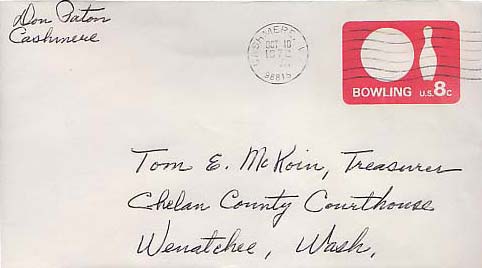 Don Paton
Cashmere
CASHMERE
OCT 10
1972
98815
BOWLING U.S. 8c
Tom E. McKoin, Treasurer
Chelan County Courthouse
Wenatchee, Wash.